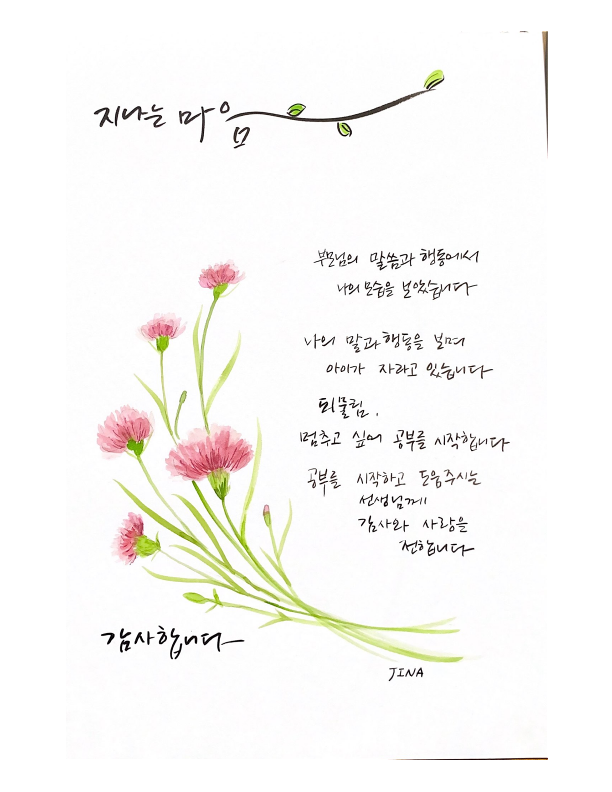 지나는 마음
부모님의 말씀과 행동에서
나의 모습을 보았습니다
나의 말과 행동을 보며
아이가 자라고 있습니다
되물림.
멈추고 싶어 공부를 시작합니다
공부를 시작하고 도움주시는
선생님께
감사와 사랑을
전합니다
감사합니다
JINA